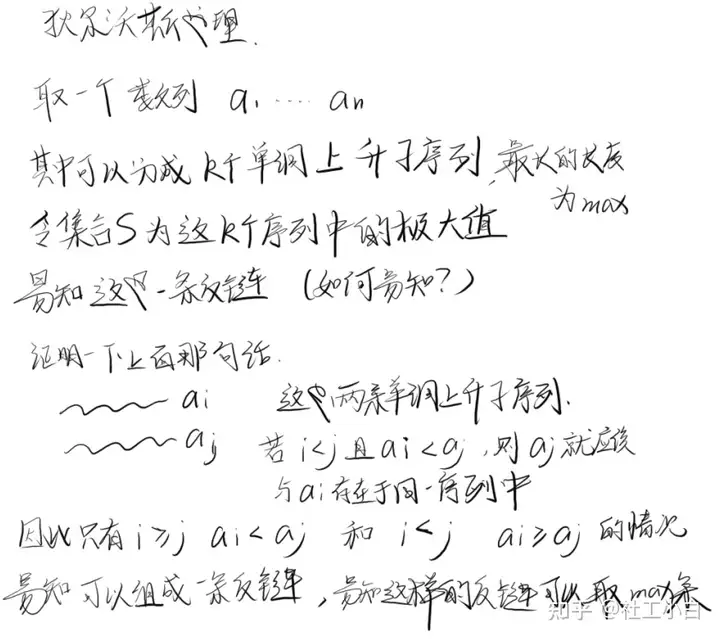 狄尔沃斯定理.
取一个数列 a₁ ····· aₙ
其中可以分成 k个单调上升子序列, 最长的长度
为max
令集合S为这k个序列中的极大值
易知这是一条反链 (如何易知?)
证明一下上面那句话.
aᵢ 这是两条单调上升子序列.
aⱼ 若 i<j 且 aᵢ<aⱼ, 则 aⱼ 就应该
与aᵢ存在于同一序列中
因此只有 i≥j aᵢ<aⱼ 和 i<j aᵢ≥aⱼ 的情况
易知可以组成一条反链, 易知这样的反链可以取max条
知乎 @社工小白